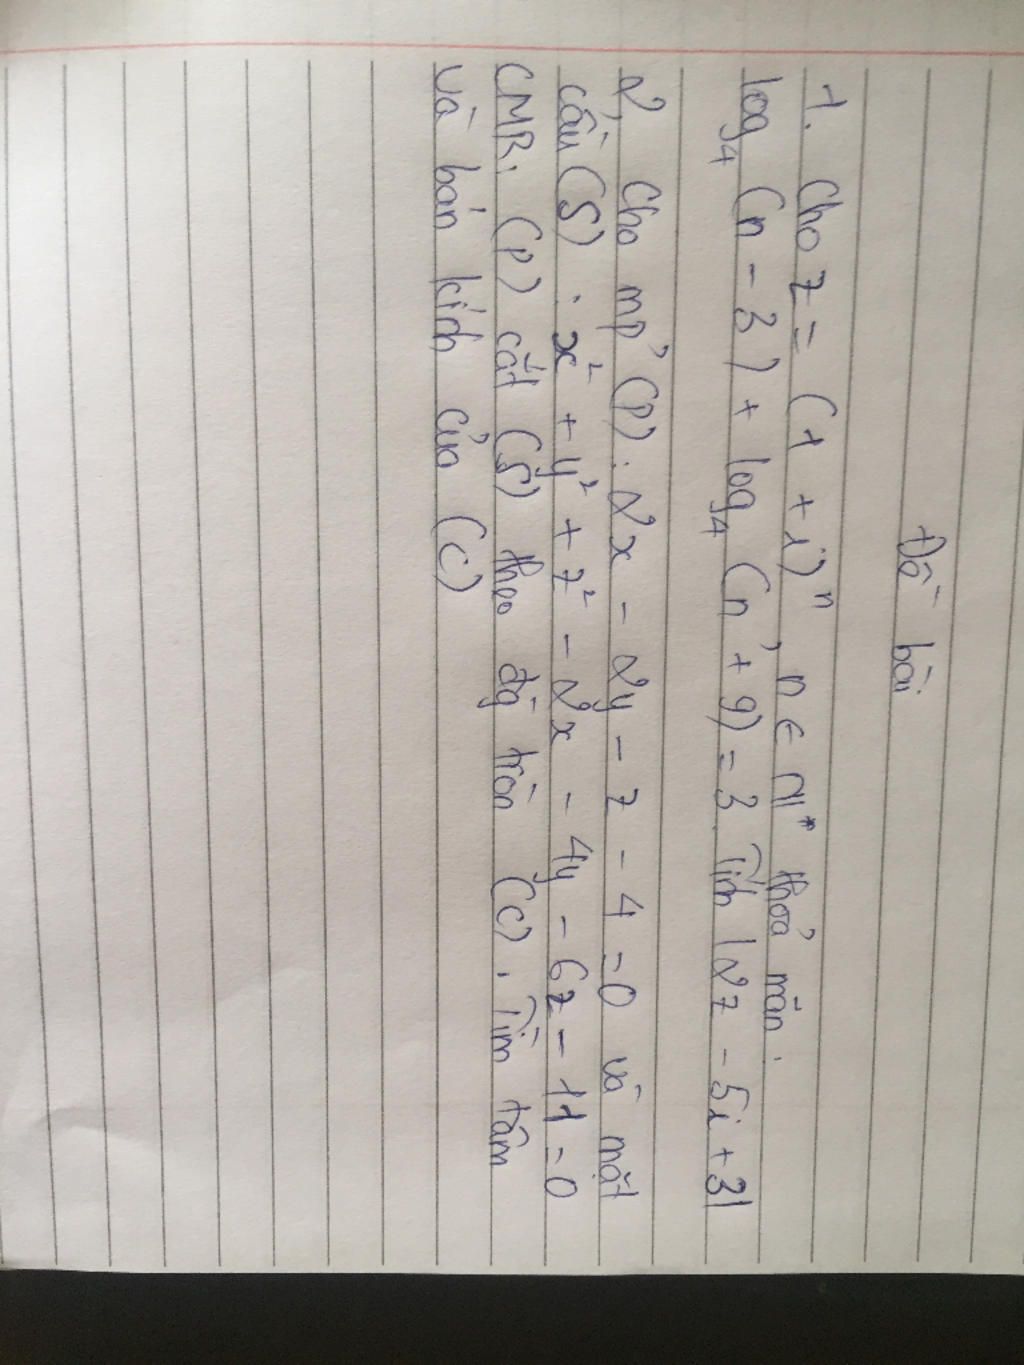 Đề bài
1. Cho z = (1 + i)ⁿ, n ∈ N* thoả mãn:
log₃₄ (n - 3) + log₃₄ (n + 9) = 3. Tính |2z - 5i + 3|
2, Cho mp' (P): 2x - 2y - z - 4 = 0 và mặt
cầu (S): x² + y² + z² - 2x - 4y - 6z - 11 = 0
CMR, (P) cắt (S) theo đg tròn (C). Tìm tâm
và bán kính của (C)